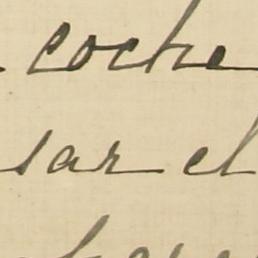 coche
sar el